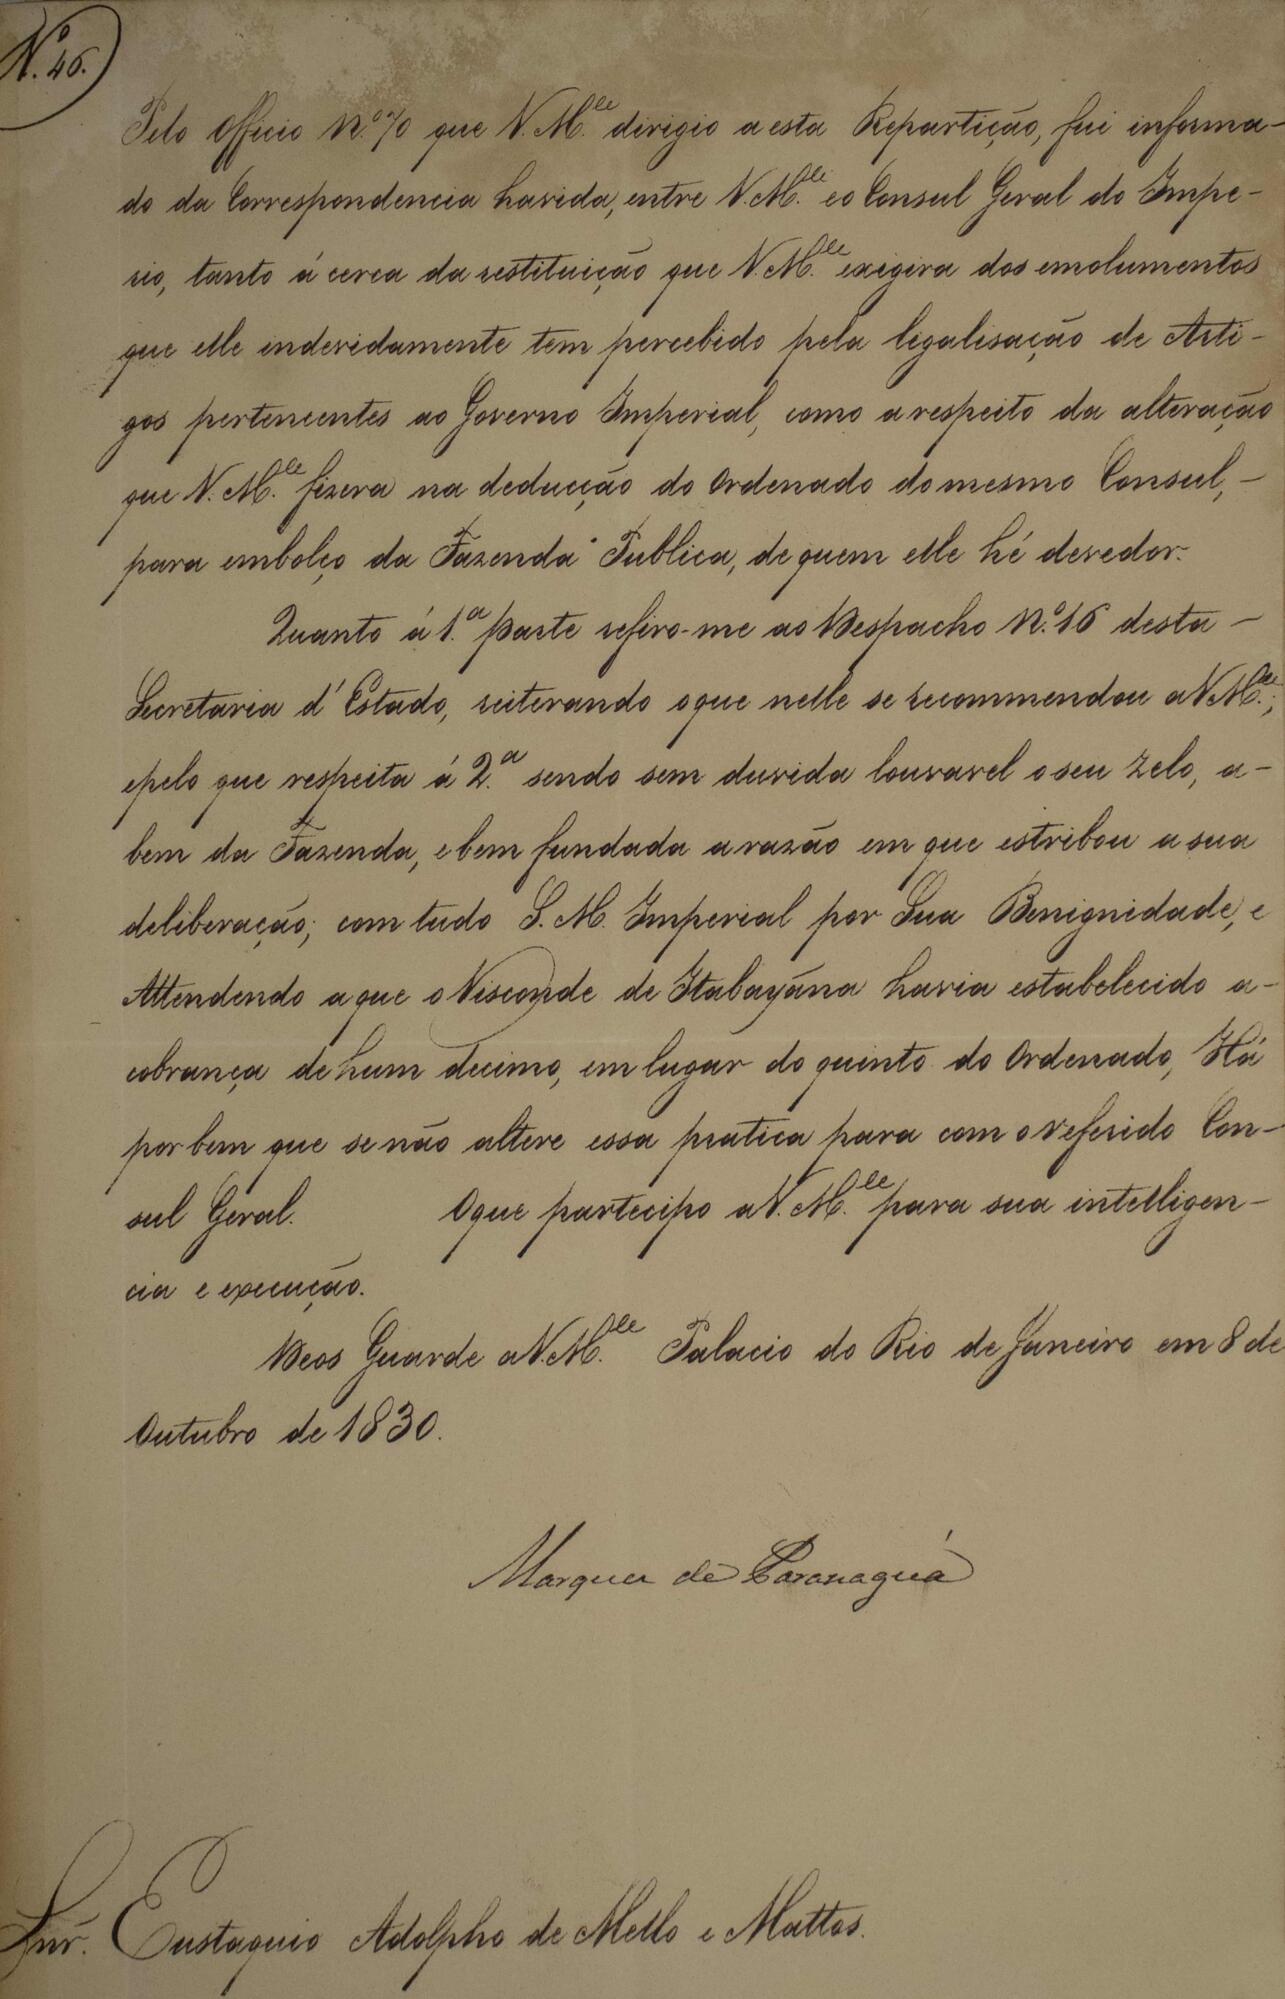 Nº 46.
Pelo Officio Nº 70 que V. M.ce dirigio a esta Repartição, fui informa-
do da Correspondencia havida, entre V. M.ce e o Consul Geral do Impe-
rio, tanto á cerca da restituição que V. M.ce exegira dos emolumentos
que elle indevidamente tem percebido pela legalisação de Arti-
gos pertencentes ao Governo Imperial, como a respeito da alteração
que V. M.ce fizera na deducção do Ordenado do mesmo Consul, -
para embolço da Fazenda Publica, de quem elle hé devedor.
Quanto á 1.ª parte refiro-me ao Despacho Nº 16 desta -
Secretaria d'Estado, reiterando o que nelle se recommendou a V. M.ce;
e pelo que respeita á 2.ª sendo sem duvida louvavel o seu zelo, a -
bem da Fazenda, e bem fundada a razão em que estribou a sua
deliberação; com tudo S. M. Imperial por Sua Benignidade, e
Attendendo a que o Visconde de Itabayána havia estabelecido a -
cobrança de hum decimo, em lugar do quinto do Ordenado, Há
por bem que se não altere essa pratica para com o referido Con-
sul Geral. O que partecipo a V. M.ce para sua intelligen-
cia e execução.
Deos Guarde a V. M.ce Palacio do Rio de Janeiro em 8 de
Outubro de 1830.
Marquez de Paranaguá
Snr. Eustaquio Adolpho de Mello e Mattos.